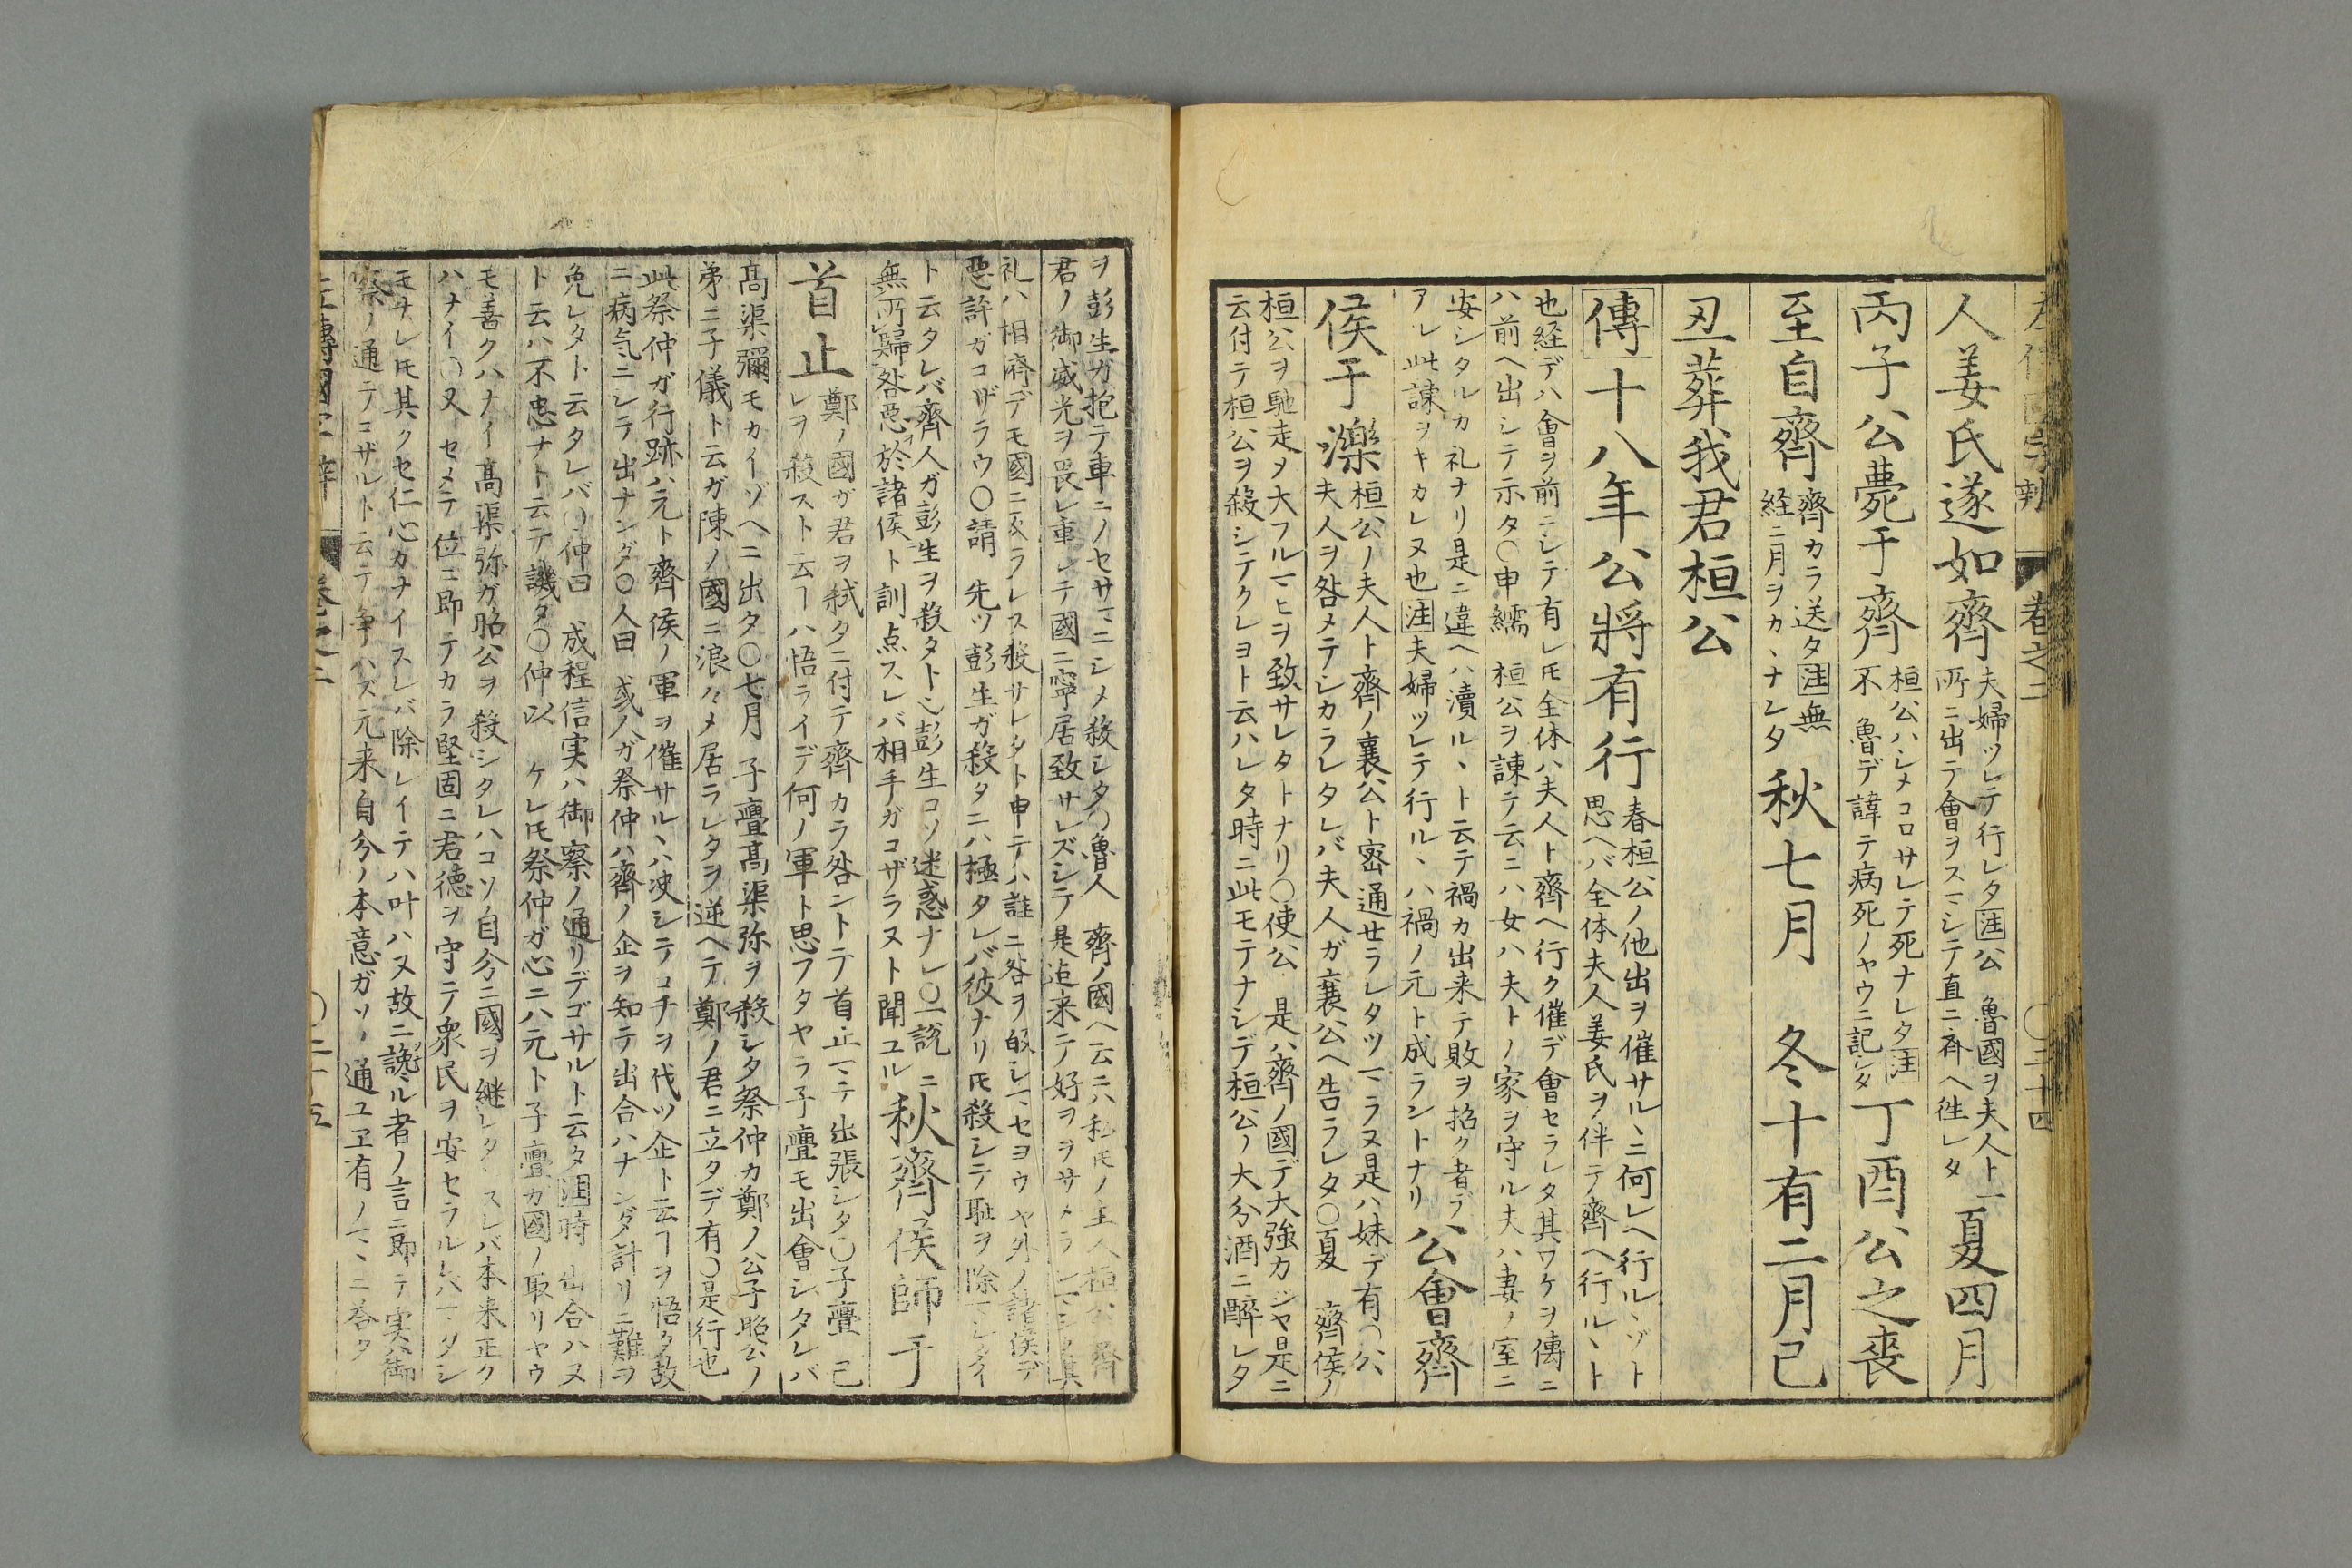 卷之二
○二十四
人姜氏遂如齊
夫婦ツレテ行レタ注公 魯國ヲ夫人ト一
所ニ出テ會ヲスマシテ直ニ齊ヘ徃レタ
夏四月
丙子公薨于齊
桓公ハシメコロサレテ死ナレタ注
不 魯デ諱テ病死ノヤウニ記シタ
丁酉公之喪
至自齊
齊カラ送タ注無
経ニ月ヲカヽナンタ
秋七月 冬十有二月己
丑葬我君桓公
傳十八年公將有行
春桓公ノ他出ヲ催サルヽニ何レヘ行ルヽゾト
思ヘバ全体夫人姜氏ヲ伴テ齊ヘ行ルヽト
也経デハ會ヲ前ニシテ有レ㐧全体ハ夫人ト齊ヘ行ク催デ會セラレタ其ワケヲ傳ニ
ハ前ヘ出シテ示タ○申繻 桓公ヲ諌テ云ニハ女ハ夫トノ家ヲ守ル夫ハ妻ノ室ニ
安シタルカ礼ナリ是ニ違ヘハ瀆ルヽト云テ禍カ出来テ敗ヲ招ク者デ
アレ此諌ヲキカレヌ也注夫婦ツレテ行ルヽハ禍ノ元ト成ラントナリ
公會齊
侯于濼
桓公ノ夫人ト齊ノ襄公ト密通セラレタツマラヌ是ハ妹デ有○公
夫人ヲ咎メテシカラレタレバ夫人ガ襄公ヘ告ラレタ○夏 齊侯ノ
桓公ヲ馳走メ大フルマヒヲ致サレタトナリ○使公 是ハ齊ノ國デ大強カジヤ是ニ
云付テ桓公ヲ殺シテクレヨト云ハレタ時ニ此モテナシデ桓公ノ大分酒ニ醉レタ
ヲ彭生ガ抱テ車ニノセサマニシメ殺シタ○魯人 齊ノ國ヘ云ニハ私トモノ主人桓公齊
君ノ御威光ヲ畏レ重シテ國ニ寧居致サレズシテ是迄来テ好ヲヲサメラレマシタ其
礼ハ相濟デモ國ニ戻ラレス殺サレタト申テハ誰ニ咎ヲ皈シマセヨウヤ外ノ諸侯デ
悪評ガコザラウ○請 先ツ彭生ガ殺タニハ極タレバ彼ナリトモ殺シテ耻ヲ除マシタイ
ト云タレバ齊人ガ彭生ヲ殺タト也彭生コソ迷惑ナレ○一説ニ
無所歸咎悪於諸侯ト訓点スレバ相手ガコザラヌト聞ユル
秋齊侯師于
首止
鄭ノ國ガ君ヲ弑タニ付テ齊カラ咎ントテ首止マテ出張シタ○子亹 己
レヲ殺スト云フハ悟ライデ何ノ軍ト思フタヤラ子亹モ出會シタレバ
髙渠彌モカイゾヘニ出タ○七月 子亹髙渠弥ヲ殺シタ祭仲カ鄭ノ公子昭公ノ
弟ニ子儀ト云ガ陳ノ國ニ浪々メ居ラレタヲ逆ヘテ鄭ノ君ニ立タデ有○是行也
此祭仲ガ行跡ハ元ト齊侯ノ軍ヲ催サルヽハ決シテコチヲ伐ツ企ト云フヲ悟タ故
ニ病気ニシテ出ナンダ○人曰 或人ガ祭仲ハ齊ノ企ヲ知テ出合ハナンダ計リニ難ヲ
免レタト云タレバ○仲曰 成程信実ハ御察ノ通リデゴサルト云タ注時 出合ハヌ
ト云ハ不忠ナト云テ譏タ○仲以 ケレトモ祭仲ガ心ニハ元ト子亹カ國ノ取リヤウ
モ善クハナイ髙渠弥ガ昭公ヲ殺シタレハコソ自分ニ國ヲ継レタヽスレバ本来正ク
ハナイ○又 セメテ位ニ即テカラ堅固ニ君徳ヲ守ニテ衆民ヲ安セラルレハマダシ
モサレトモ其クセ仁心カナイスレバ除レイテハ叶ハヌ故ニ譏ル者ノ言ニ即テ実ハ御
察ノ通テコザルト云テ争ハズ元来自分ノ本意ガソノ通ユヱ有ノマヽニ答タ
卷之二